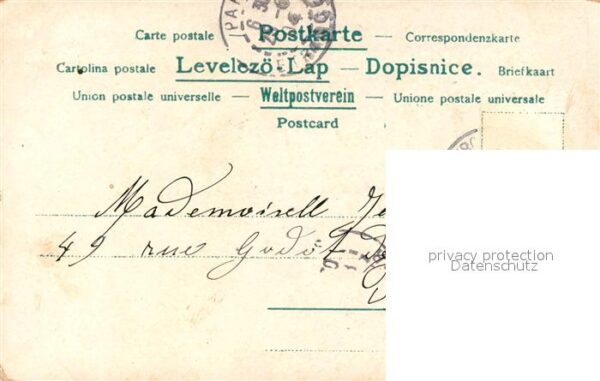 Carte postale — Postkarte — Correspondenzkarte
Cartolina postale Levelező-Lap — Dopisnice. Briefkaart
Union postale universelle — Weltpostverein — Unione postale universale
Postcard
Mademoisell
49 rue Godot
privacy protection
Datenschutz